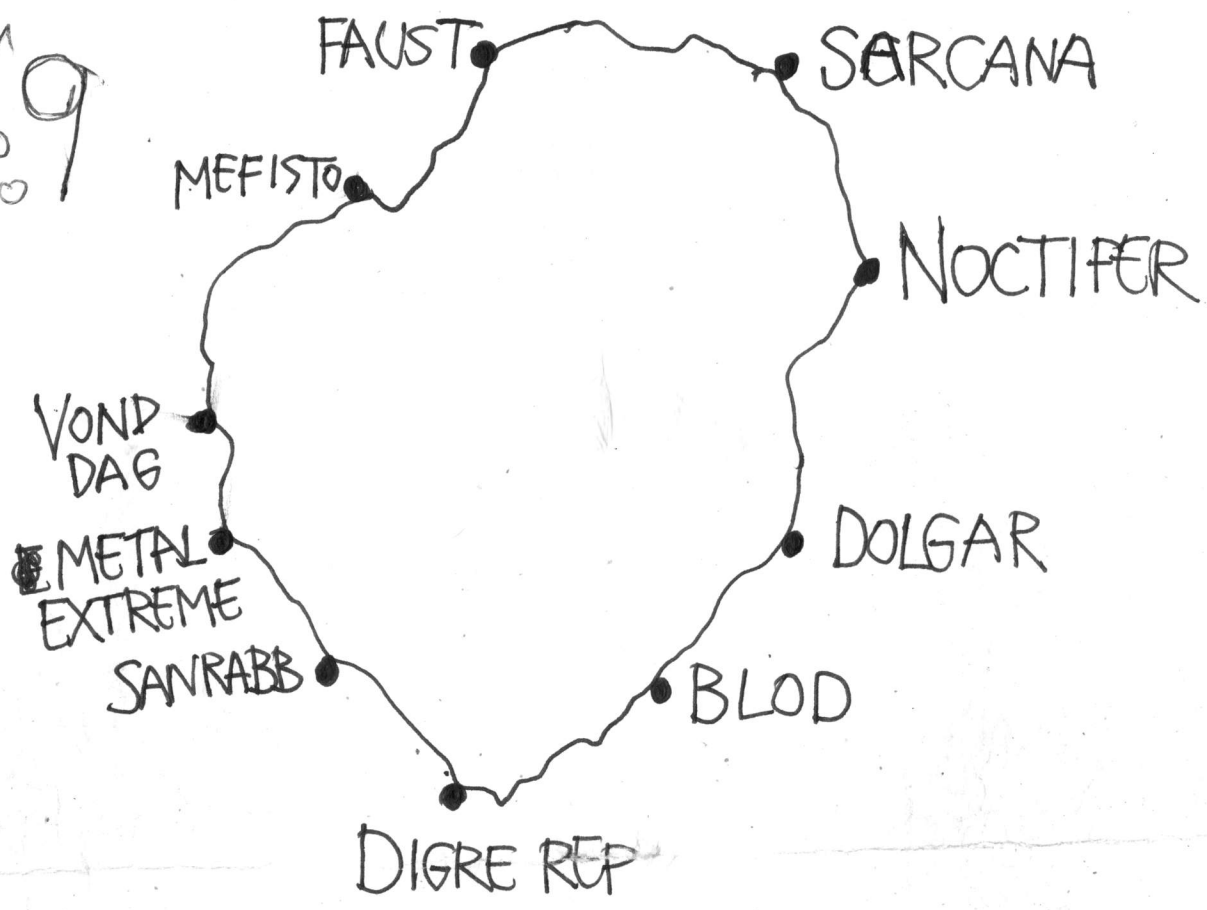 9
FAUST
SARCANA
MEFISTO
NOCTIFER
VOND
DAG
METAL
EXTREME
DOLGAR
SANRABB
BLOD
DIGRE REP